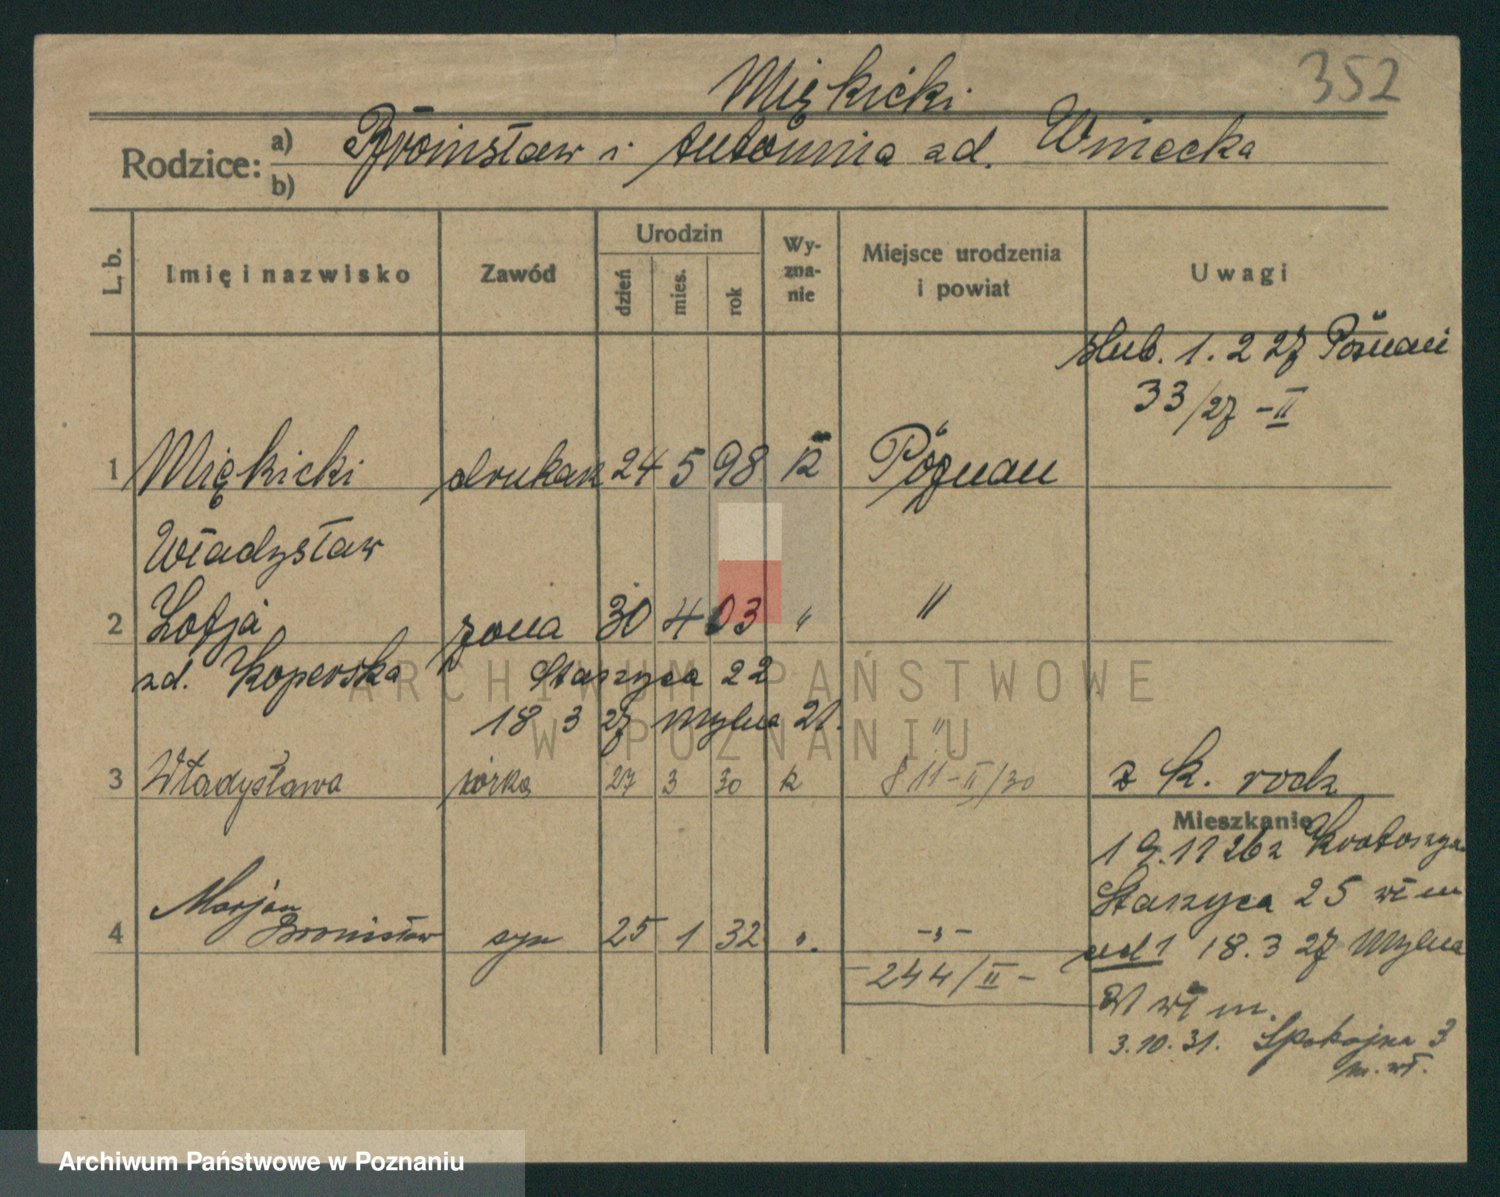 352
Miękicki
Rodzice: a) Bronisław i Antonina zd. Wniecka
b)
L. b. Imię i nazwisko Zawód Urodzin dzień mies. rok Wy-zna-nie Miejsce urodzenia i powiat Uwagi
ślub. 1.2 27 Poznań
33/27 - II
1 Miękicki drukarz 24 5 98 R Poznań
Władysław
2 Zofja żona 30 4 03 " "
zd. Koperska Staszyca 22
18 3 27 Mylna 21.
"
3 Władysława córka 27 3 30 R 811-II/30 z k. rodz
Mieszkanie
19.11 26 z Krotoszyna
Staszyca 25 wł m
4 Marjan Bronisław syn 25 1 32 " -"-
ad 1 18.3 27 Mylna
244/II -
21 wł m.
3.10.31. Spokojna 3
m. wł.
ARCHIWUM PAŃSTWOWE
W POZNANIU
Archiwum Państwowe w Poznaniu